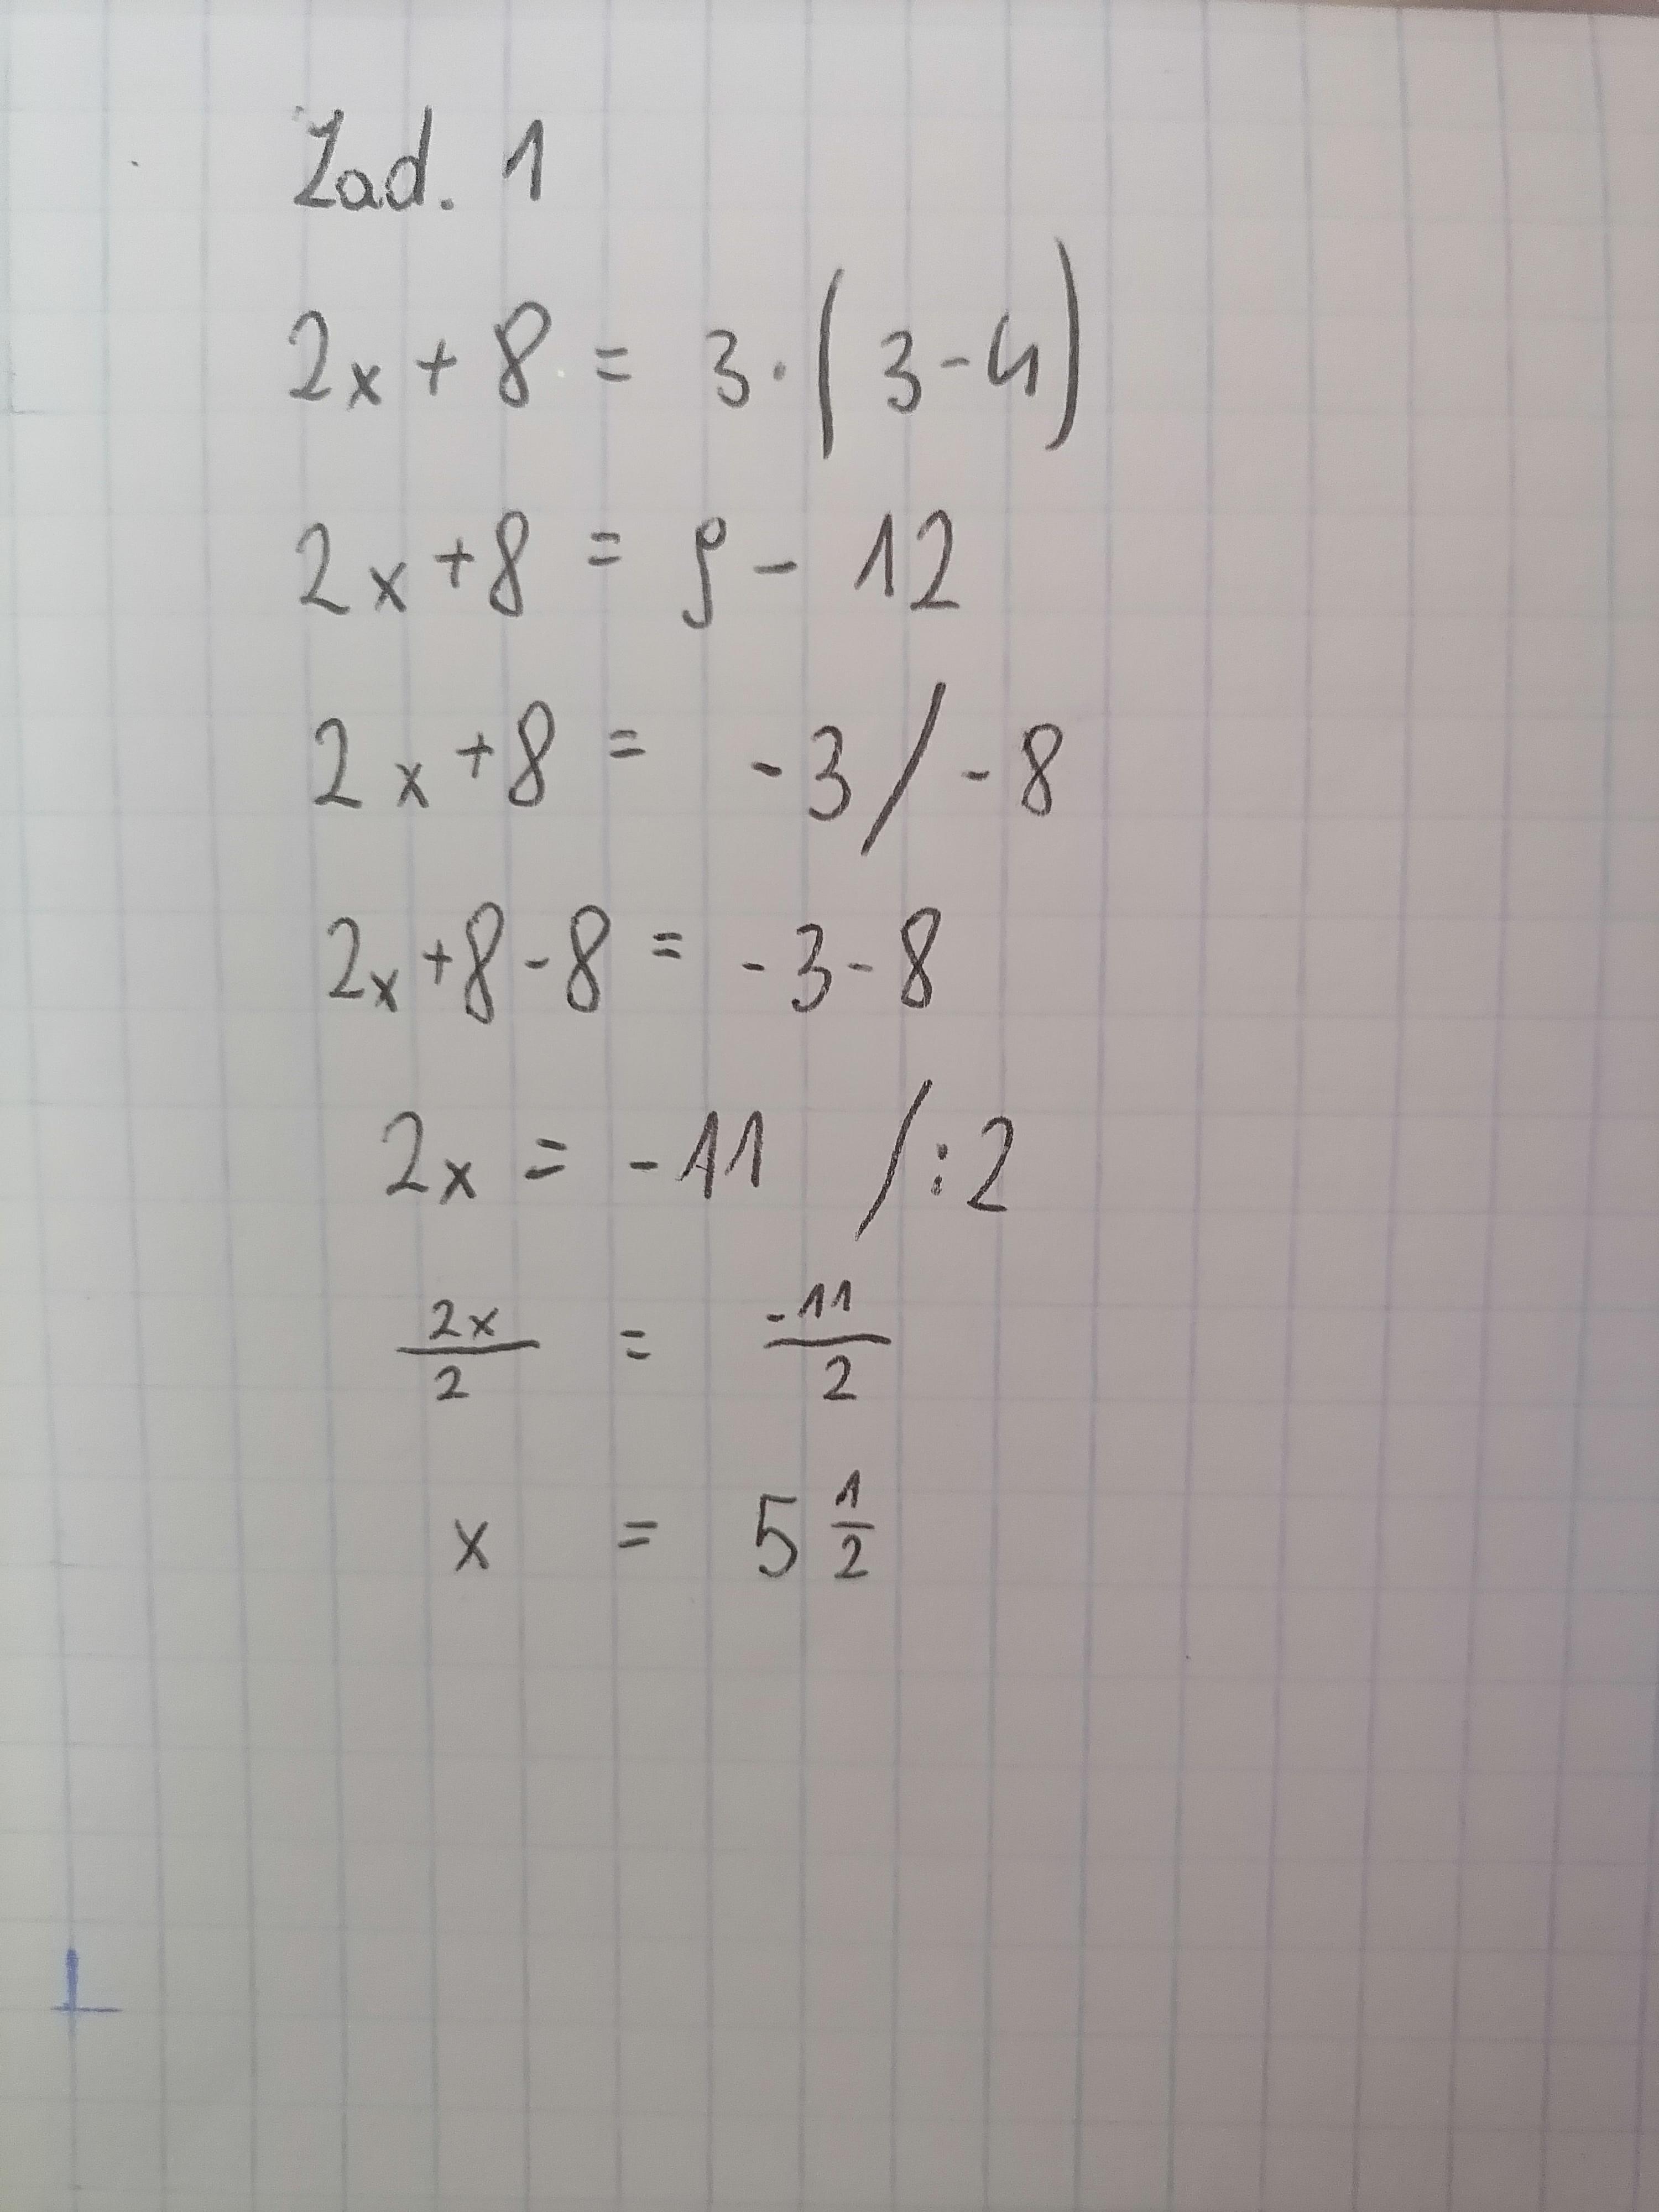 Zad. 1
2x + 8 = 3 · (3 - 4)
2x + 8 = 9 - 12
2x + 8 = -3 / -8
2x + 8 - 8 = -3 - 8
2x = -11 / :2
2x/2 = -11/2
x = 5 1/2